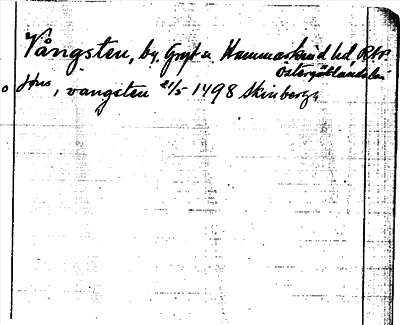 Vångsten, by, Gryt sn Hammarkind hd,
Östergötland län
Jöns, vangsten 21/5 1498 Skinberga